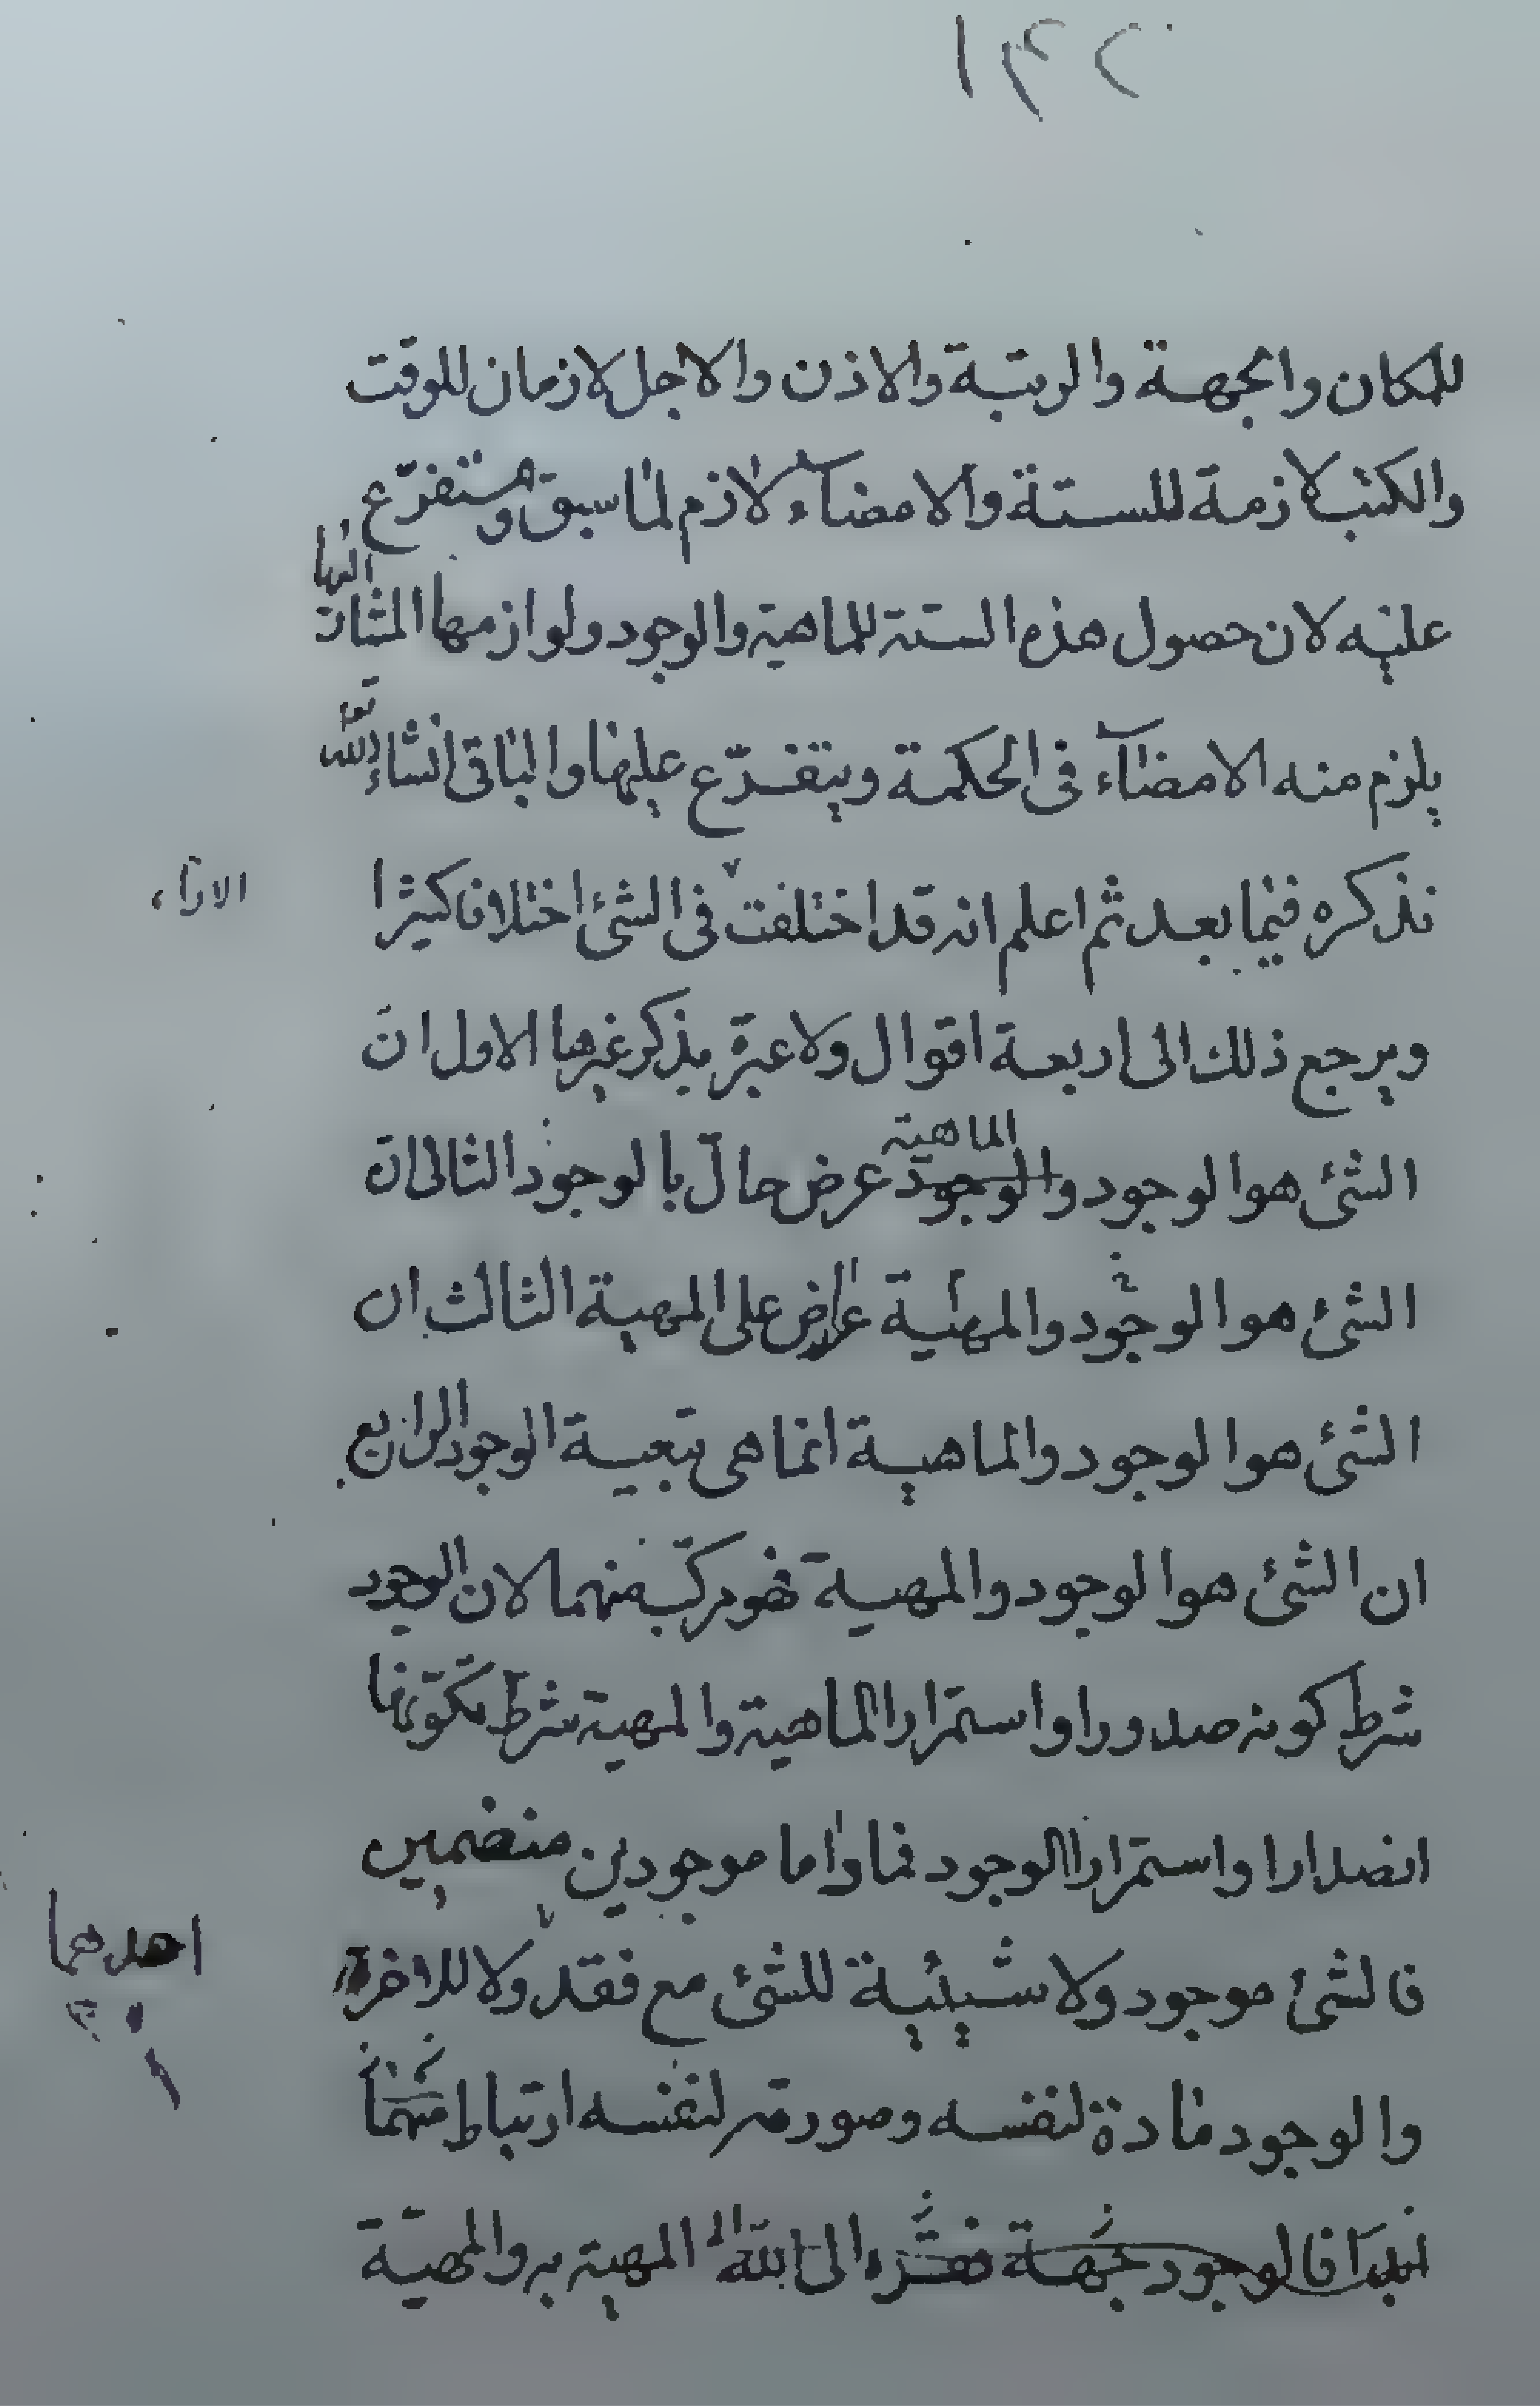 ١٤٢
للمكان والجهة والرتبة والاذن والاجل لازمان للوقت
والكتب لازمة للستة والامضاء لازم لما سبق ومتفرّع
عليه لان حصول هذه الستة للماهية والوجود ولوازمها المشار
اليها
يلزم منه الامضآء فى الحكمة ويتفرّع عليها والباقى انشاء الله
تعا
نذكره فيما بعد ثم اعلم انه قد اختلفت فى الشئ اختلافا كثيرا
الاراء
ويرجع ذلك الى اربعة اقوال ولا عبرة بذكر غيرها الاول انّ
الشئ هو الوجود والوجود عرض حالّ بالوجود الثانى انّ
الماهية
الشئ هو الوجود والمهية عارض على المهية الثالث ان
الشئ هو الوجود والماهية انما هى بتعبية الوجود الرابع
ان الشئ هو الوجود والمهية فهو مركّب منهما لان الوجود
شرط كونه صدورا واستمرارا الماهية والمهية شرط تكوّنها
انصدارا واستمرارا الوجود فما داما موجودين منضمين
فالشئ موجود ولا شيئية للشئ مع فقد ولا للاخر
احدهما
والوجود مادة لنفسه وصورته لنفسه ارتباط منهما
فالوجود جهة الى الله المهية به والمهيّة